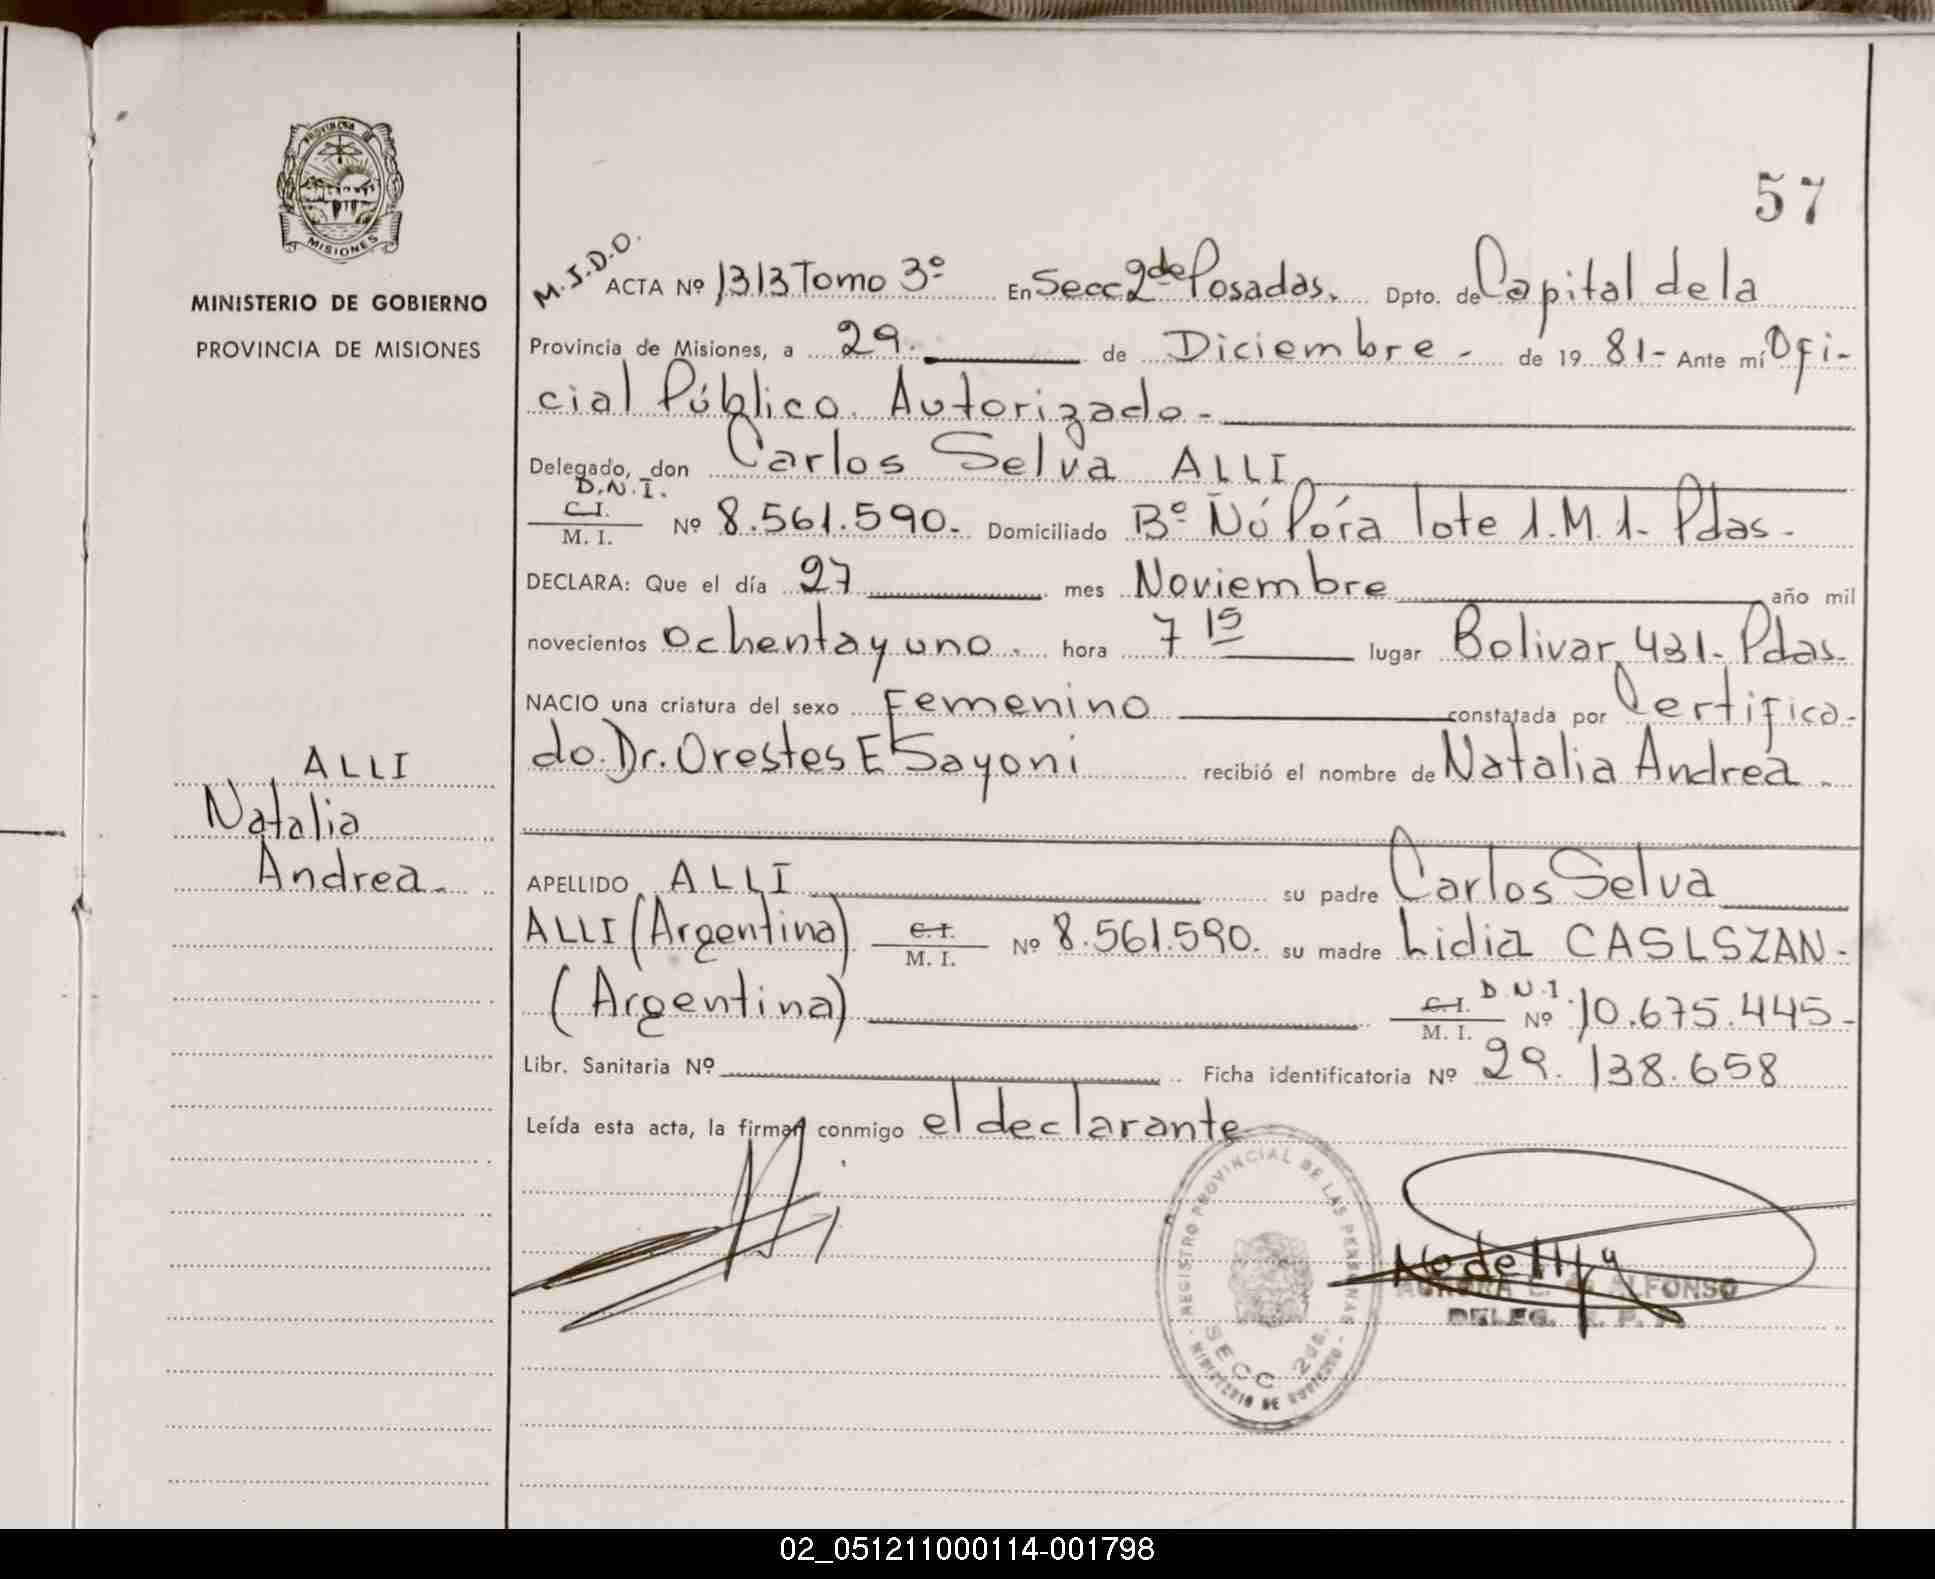 57
PROVINCIA DE
MISIONES
MINISTERIO DE GOBIERNO
PROVINCIA DE MISIONES
ALLI
Natalia
Andrea.
M.S.D.O.
ACTA Nº 1313 Tomo 3º En Secc 2da Posadas. Dpto. de Capital de la
Provincia de Misiones, a 29. de Diciembre - de 19 81- Ante mí Ofi-
cial Público Autorizado -
Delegado, don Carlos Selva ALLI
D.N.I.
C.I.
M. I. Nº 8.561.590.- Domiciliado Bº Ñú Porá lote 1.M.1- Pdas -
DECLARA: Que el día 27 mes Noviembre año mil
novecientos ochenta y uno. hora 7 15 lugar Bolivar 431- Pdas.
NACIO una criatura del sexo Femenino constatada por Certifica-
do. Dr. Orestes E Sayoni recibió el nombre de Natalia Andrea.
APELLIDO ALLI su padre Carlos Selva
ALLI (Argentina) C.I.
M. I. Nº 8.561.590. su madre Lidia CASLSZAN-
(Argentina) C.I. D.N.I.
M. I. Nº 10.675.445-
Libr. Sanitaria Nº Ficha identificatoria Nº 29.138.658
Leída esta acta, la firman conmigo el declarante
REGISTRO PROVINCIAL DE LAS PERSONAS
SECC 2da.
MINISTERIO DE GOBIERNO
ALFONSO
DELEG.
02_051211000114-001798